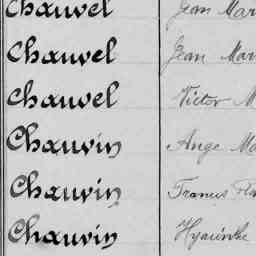 Chauvel Jean Mar
Chauvel Jean Mar
Chauvel Victor M
Chauvin Ange Ma
Chauvin Francis
Chauvin Hyacinthe